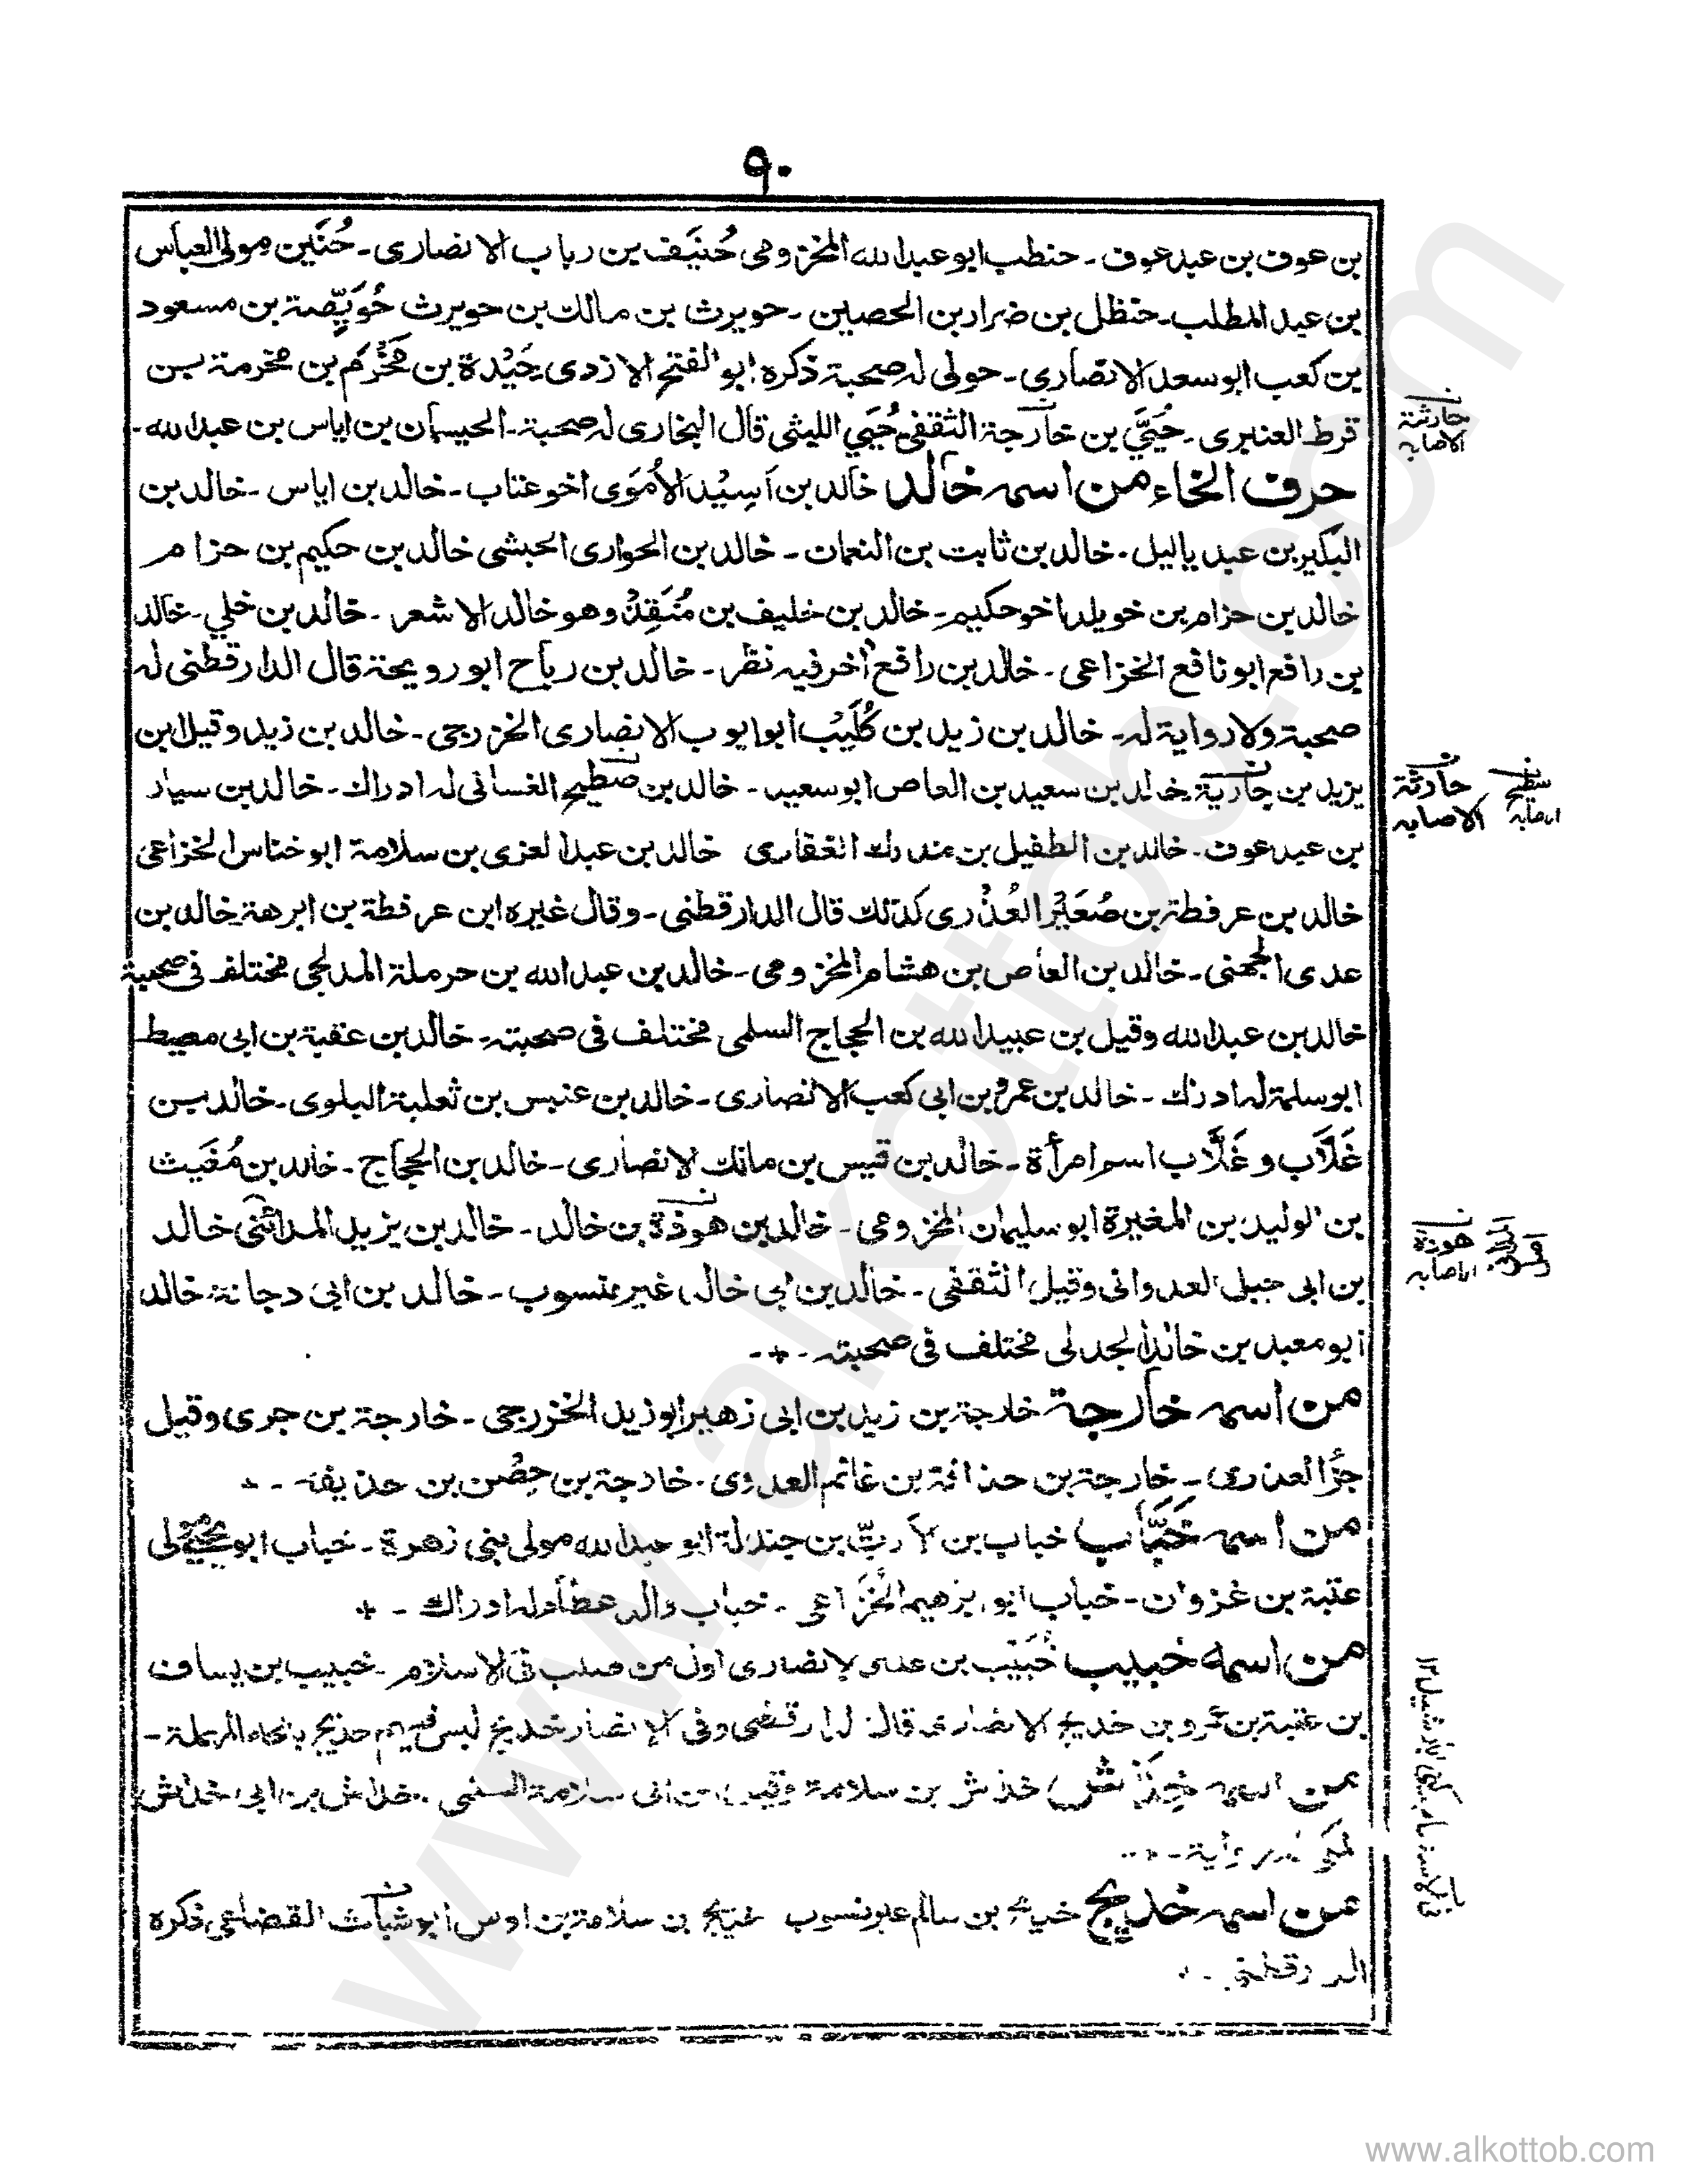 ٩٠
بن عوف بن عبد عوف - حنطب ابو عبد الله المخزومى حُنَيف بن رباب الانصارى - حُنَين مولى العباس
بن عبد المطلب - حنظل بن ضرار بن الحصين - حويرث بن مالك بن حويرث حُوَيِّصة بن مسعود
بن كعب ابو سعد الانصارى - حولى له صحبة ذكره ابو الفتح الازدى حَيْدة بن مُخَرَّم بن مخرمة بن
قرط العنبرى - حُيَيّ بن خارجة الثقفى حُيَي الليثى قال البخارى له صحبة - الحيسمان بن اياس بن عبد الله -
حارثة
الاصابه
حرف الخاء من اسمه خالد خالد بن اَسِيْد الاُمَوى اخو عتاب - خالد بن اياس - خالد بن
البكير بن عبد ياليل - خالد بن ثابت بن النعمان - خالد بن الحوارى الحبشى خالد بن حكيم بن حزام
خالد بن حزام بن خويلد اخو حكيم - خالد بن خليف بن مُنقِذ وهو خالد الاشعر - خالد بن خلي - خالد
بن رافع ابو نافع الخزاعى - خالد بن رافع اٰخر فيه نظر - خالد بن رباح ابو رويحة قال الدارقطنى له
صحبة ولا رواية له - خالد بن زيد بن كُلَيْب ابو ايوب الانصارى الخزرجى - خالد بن زيد وقيل ابن
يزيد بن جارية خالد بن سعيد بن العاص ابو سعيد - خالد بن صطيح الغسانى له ادراك - خالد بن سيار
حارثة
الاصابه
سطيح
اصابه
بن عبد عوف - خالد بن الطفيل بن مدرك الغفارى خالد بن عبد العزى بن سلامة ابو خناس الخزاعى
خالد بن عرفطة بن صُعَيْر العُذْرى كذلك قال الدارقطنى - وقال غيره ابن عرفطة بن ابرهة خالد بن
عدى الجهنى - خالد بن العاص بن هشام المخزومى - خالد بن عبد الله بن حرملة المدلجى مختلف فى صحبة
خالد بن عبد الله وقيل بن عبيد الله بن الحجاج السلمى مختلف فى صحبته - خالد بن عقبة بن ابى معيط
ابو سلمة له ادراك - خالد بن عمرو بن ابى كعب الانصارى - خالد بن عنبس بن ثعلبة البلوى - خالد بن
غَلَاب و غَلَّاب اسم امرأة - خالد بن قيس بن مالك الانصارى - خالد بن الحجاج - خالد بن مُغَيث
بن الوليد بن المغيرة ابو سليمان المخزومى - خالد بن هوذة بن خالد - خالد بن يزيد المدائنى خالد
هوزة
اصابه
بن ابى جبل العدوانى وقيل الثقفى - خالد بن ابى خالد غير منسوب - خالد بن ابى دجانة خالد
ابو معبد بن خالد الجدلى مختلف فى صحبته - + -
من اسمه خارجة خارجة بن زيد بن ابى زهير ابو زيد الخزرجى - خارجة بن جرى وقيل
جزأ العذرى - خارجة بن حذافة بن غانم العدوى - خارجة بن حِصْن بن حذيفة - +
من اسمه خَبَّاب خباب بن الارتّ بن جندلة ابو عبد الله مولى بنى زهرة - خباب ابو يحيى مولى
عتبة بن غزوان - خباب ابو ابرهيم الخُزاعى - خباب والد عطاء له ادراك - +
من اسمه خبيب خُبَيْب بن عدى الانصارى اول من صلب فى الاسلام - خبيب بن يساف
بن عتبة بن عمرو بن خديج الانصارى قال الدارقطنى وفى الانصار خديج ليس فيهم حديج بالحاء المهملة -
من اسمه خِدَاش خداش بن سلامة وقيل بن ابى سلامة السلمى - خداش بن ابى خداش
المكى رواية - +
من اسمه خديج خديج بن سالم غير منسوب خديج بن سلامة بن اوس ابو شباث القضاعى ذكره
الدارقطنى - +
www.alkottob.com